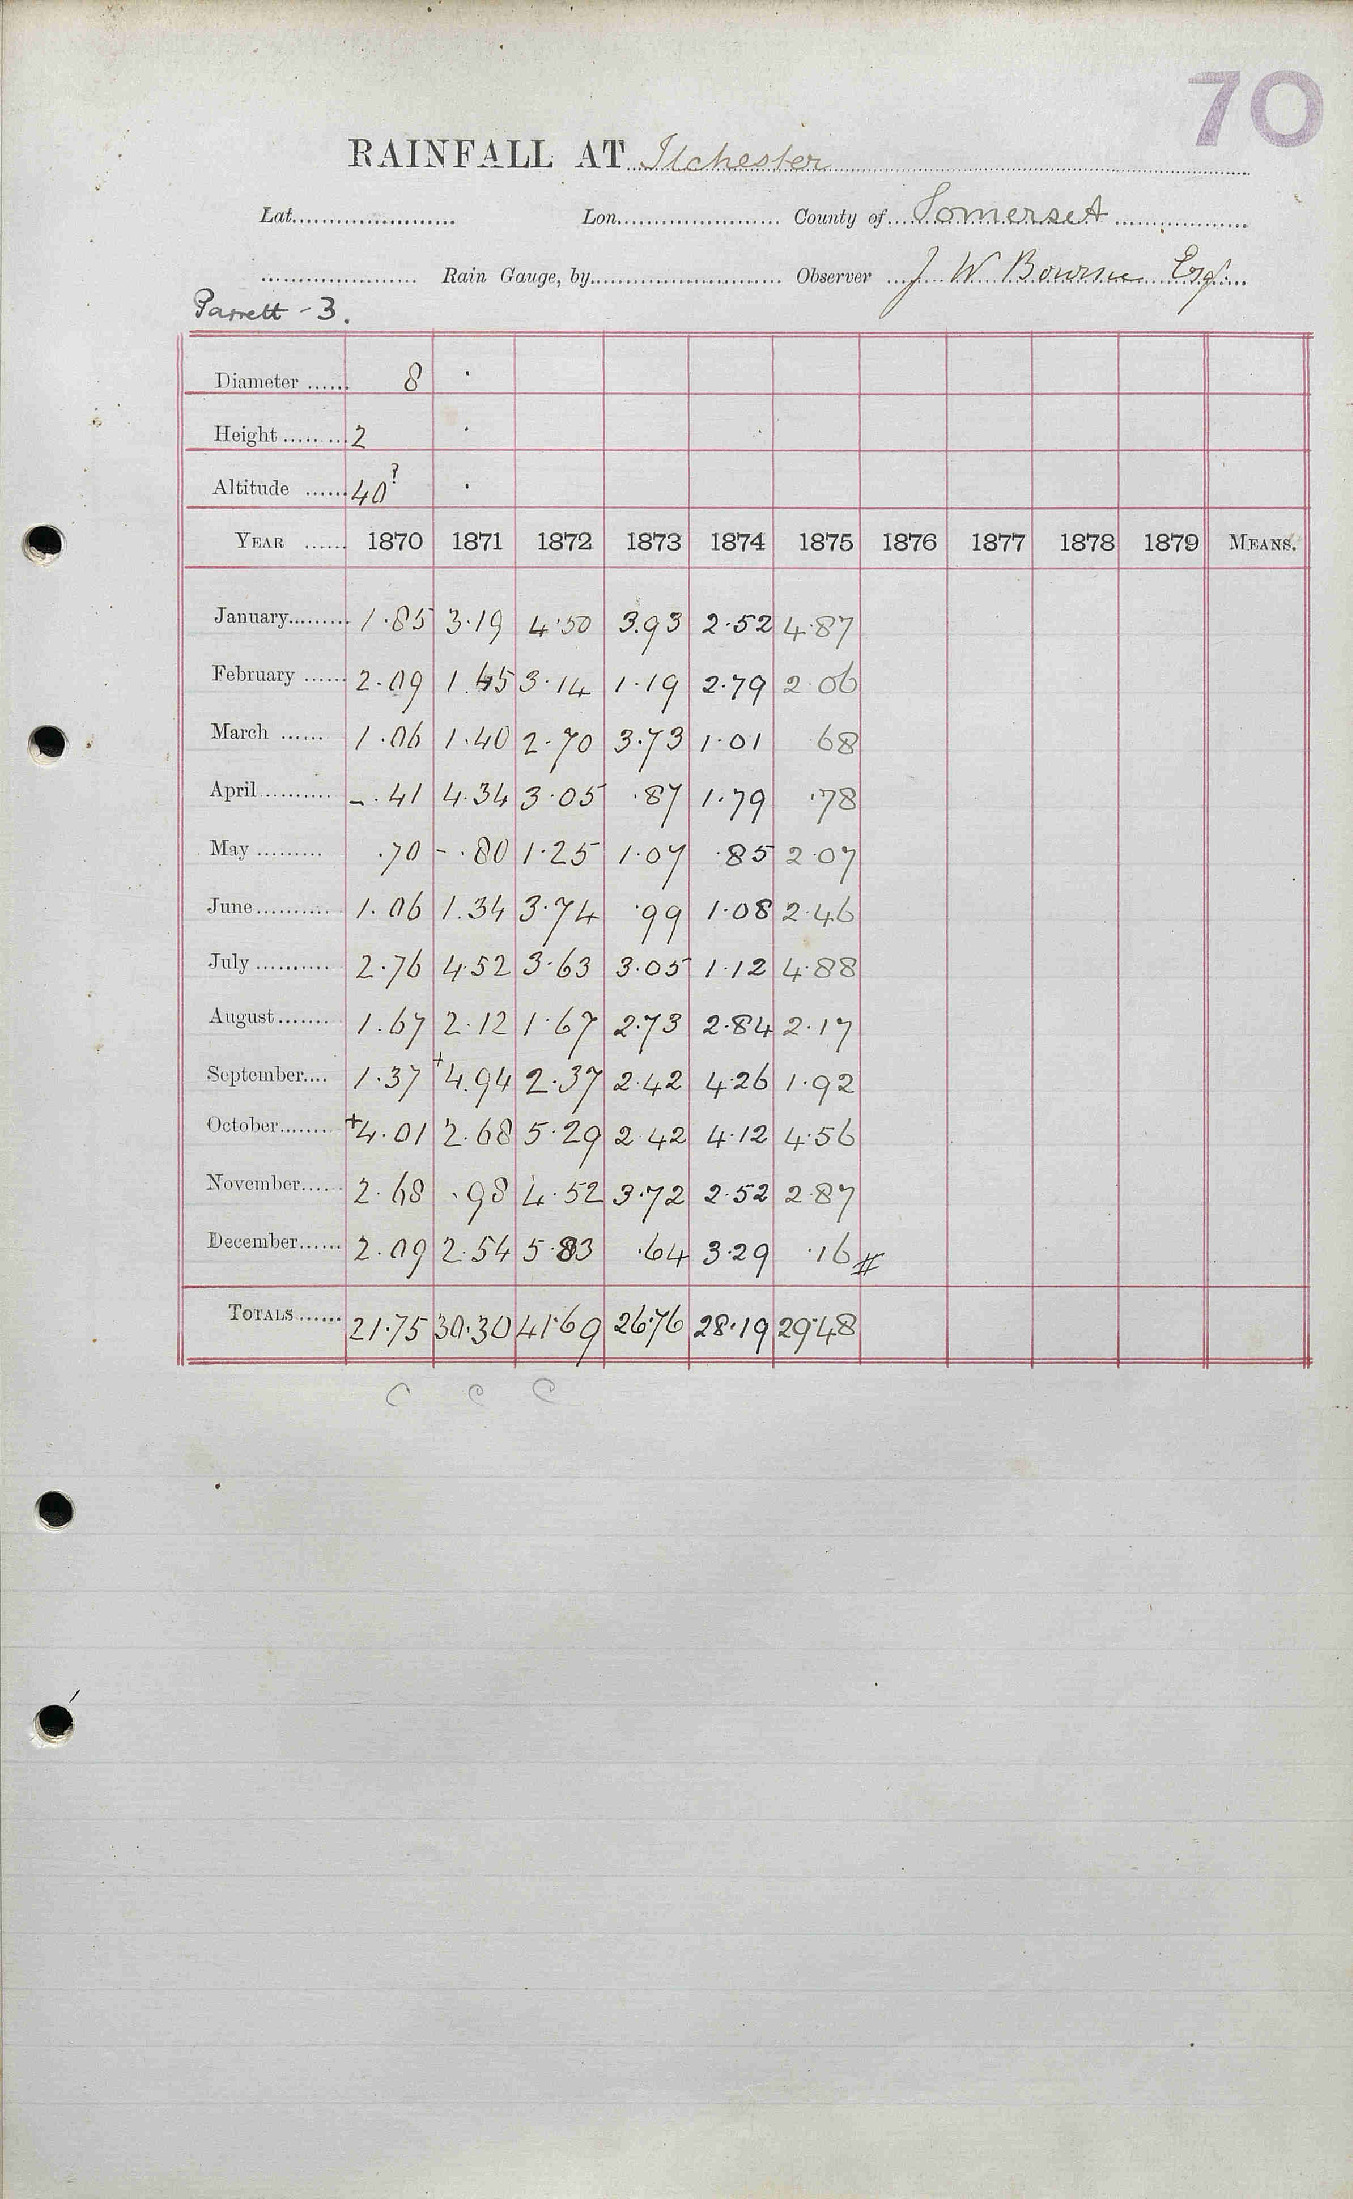 70
RAINFALL AT Ilchester
Lat. Lon. County of Somerset
Rain Gauge, by Observer J W Bourne Esq.
Parrett - 3.
Diameter 8 .
Height 2 .
Altitude 40? .
YEAR 1870 1871 1872 1873 1874 1875 1876 1877 1878 1879 MEANS.
January 1.85 3.19 4.50 3.93 2.52 4.87
February 2.09 1.45 3.14 1.19 2.79 2.06
March 1.06 1.40 2.70 3.73 1.01 68
April -.41 4.34 3.05 .87 1.79 .78
May .70 -.80 1.25 1.07 .85 2.07
June 1.06 1.34 3.74 .99 1.08 2.46
July 2.76 4.52 3.63 3.05 1.12 4.88
August 1.67 2.12 1.67 2.73 2.84 2.17
September 1.37 +4.94 2.37 2.42 4.26 1.92
October +4.01 2.68 5.29 2.42 4.12 4.56
November 2.68 .98 4.52 3.72 2.52 2.87
December 2.09 2.54 5.83 .64 3.29 .16 #
TOTALS 21.75 30.30 41.69 26.76 28.19 29.48
C C C